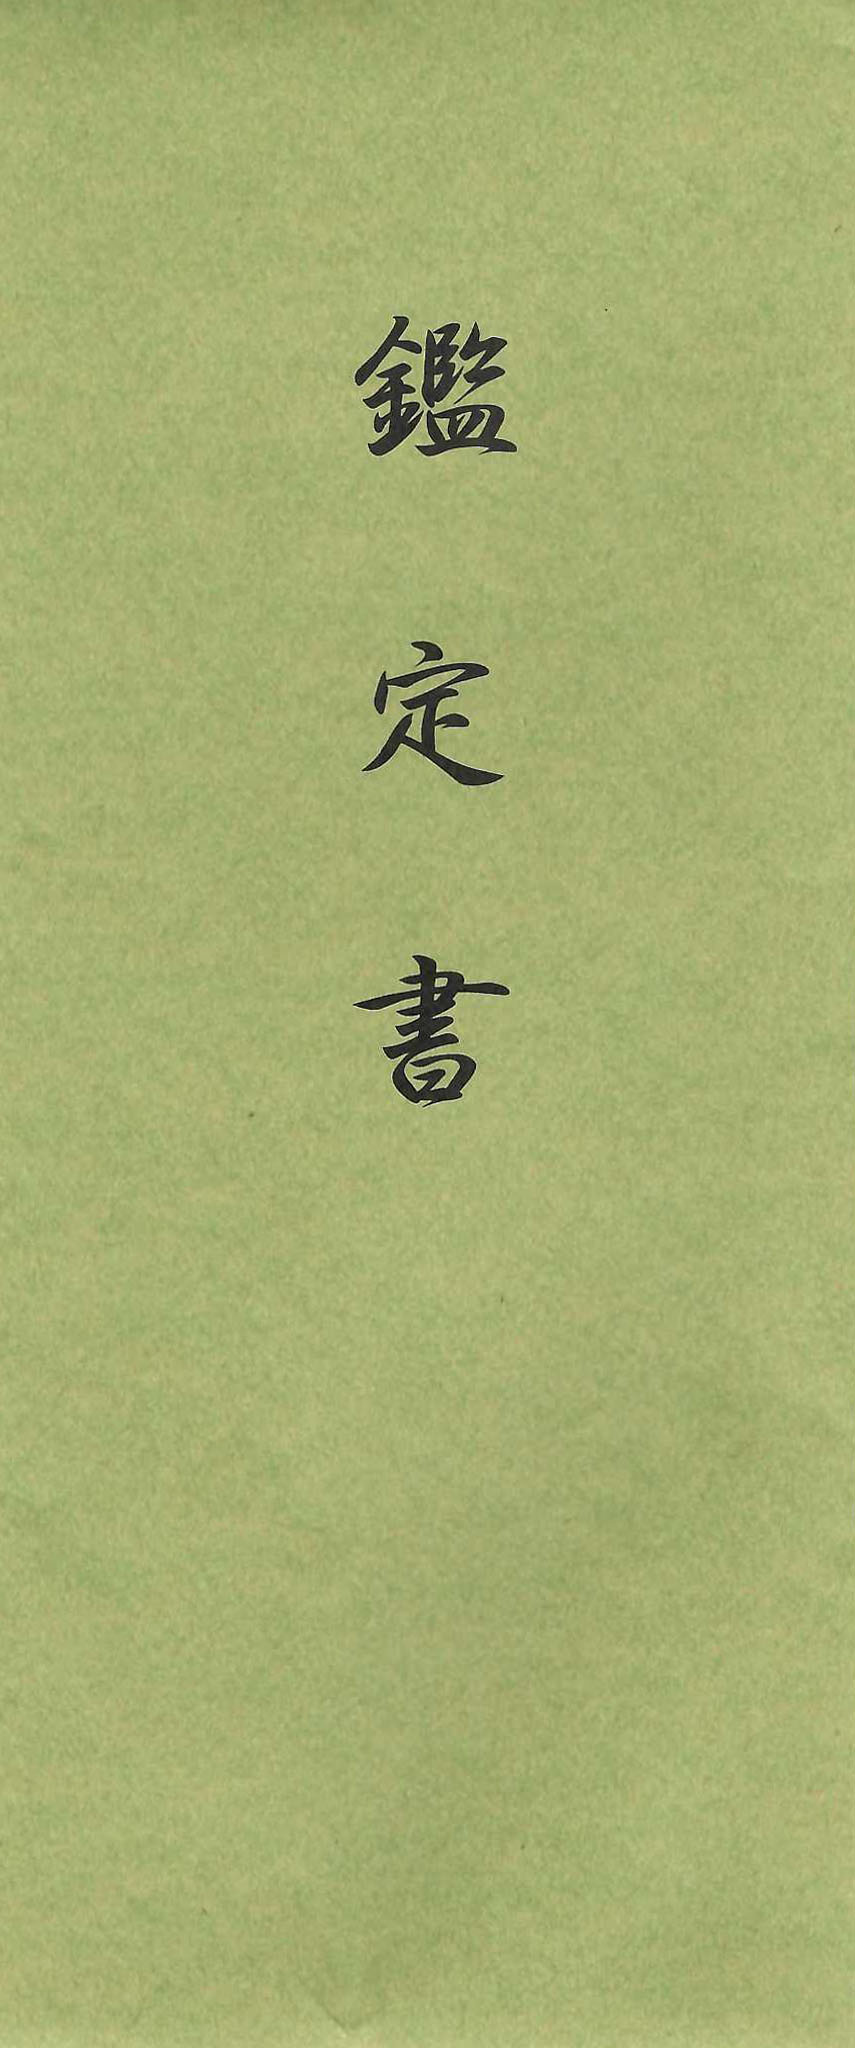 鑑定書